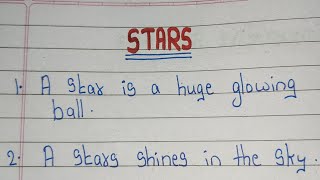 STARS
1. A star is a huge glowing
ball.
2. A stars shines in the sky.